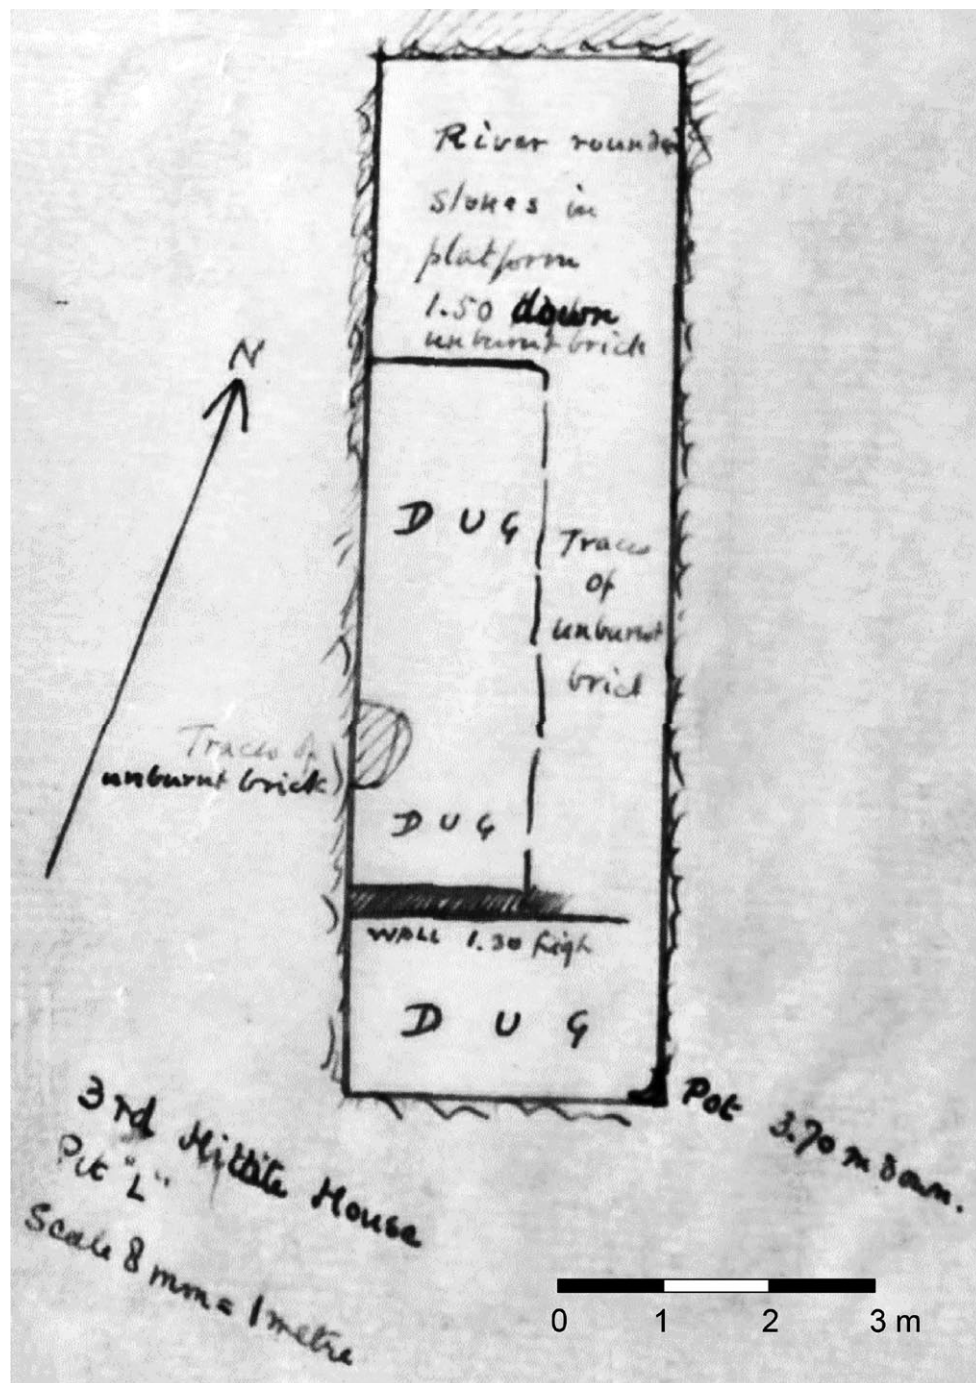 River rounded
stones in
platform
1.50 down
unburnt brick
N
D U G
Traces
of
unburnt
brick
Traces of
unburnt brick
D U G
WALL 1.30 high
D U G
Pot 3.70 m down.
3rd Hittite House
Pit "L"
Scale 8 mm = 1 metre
0 1 2 3 m